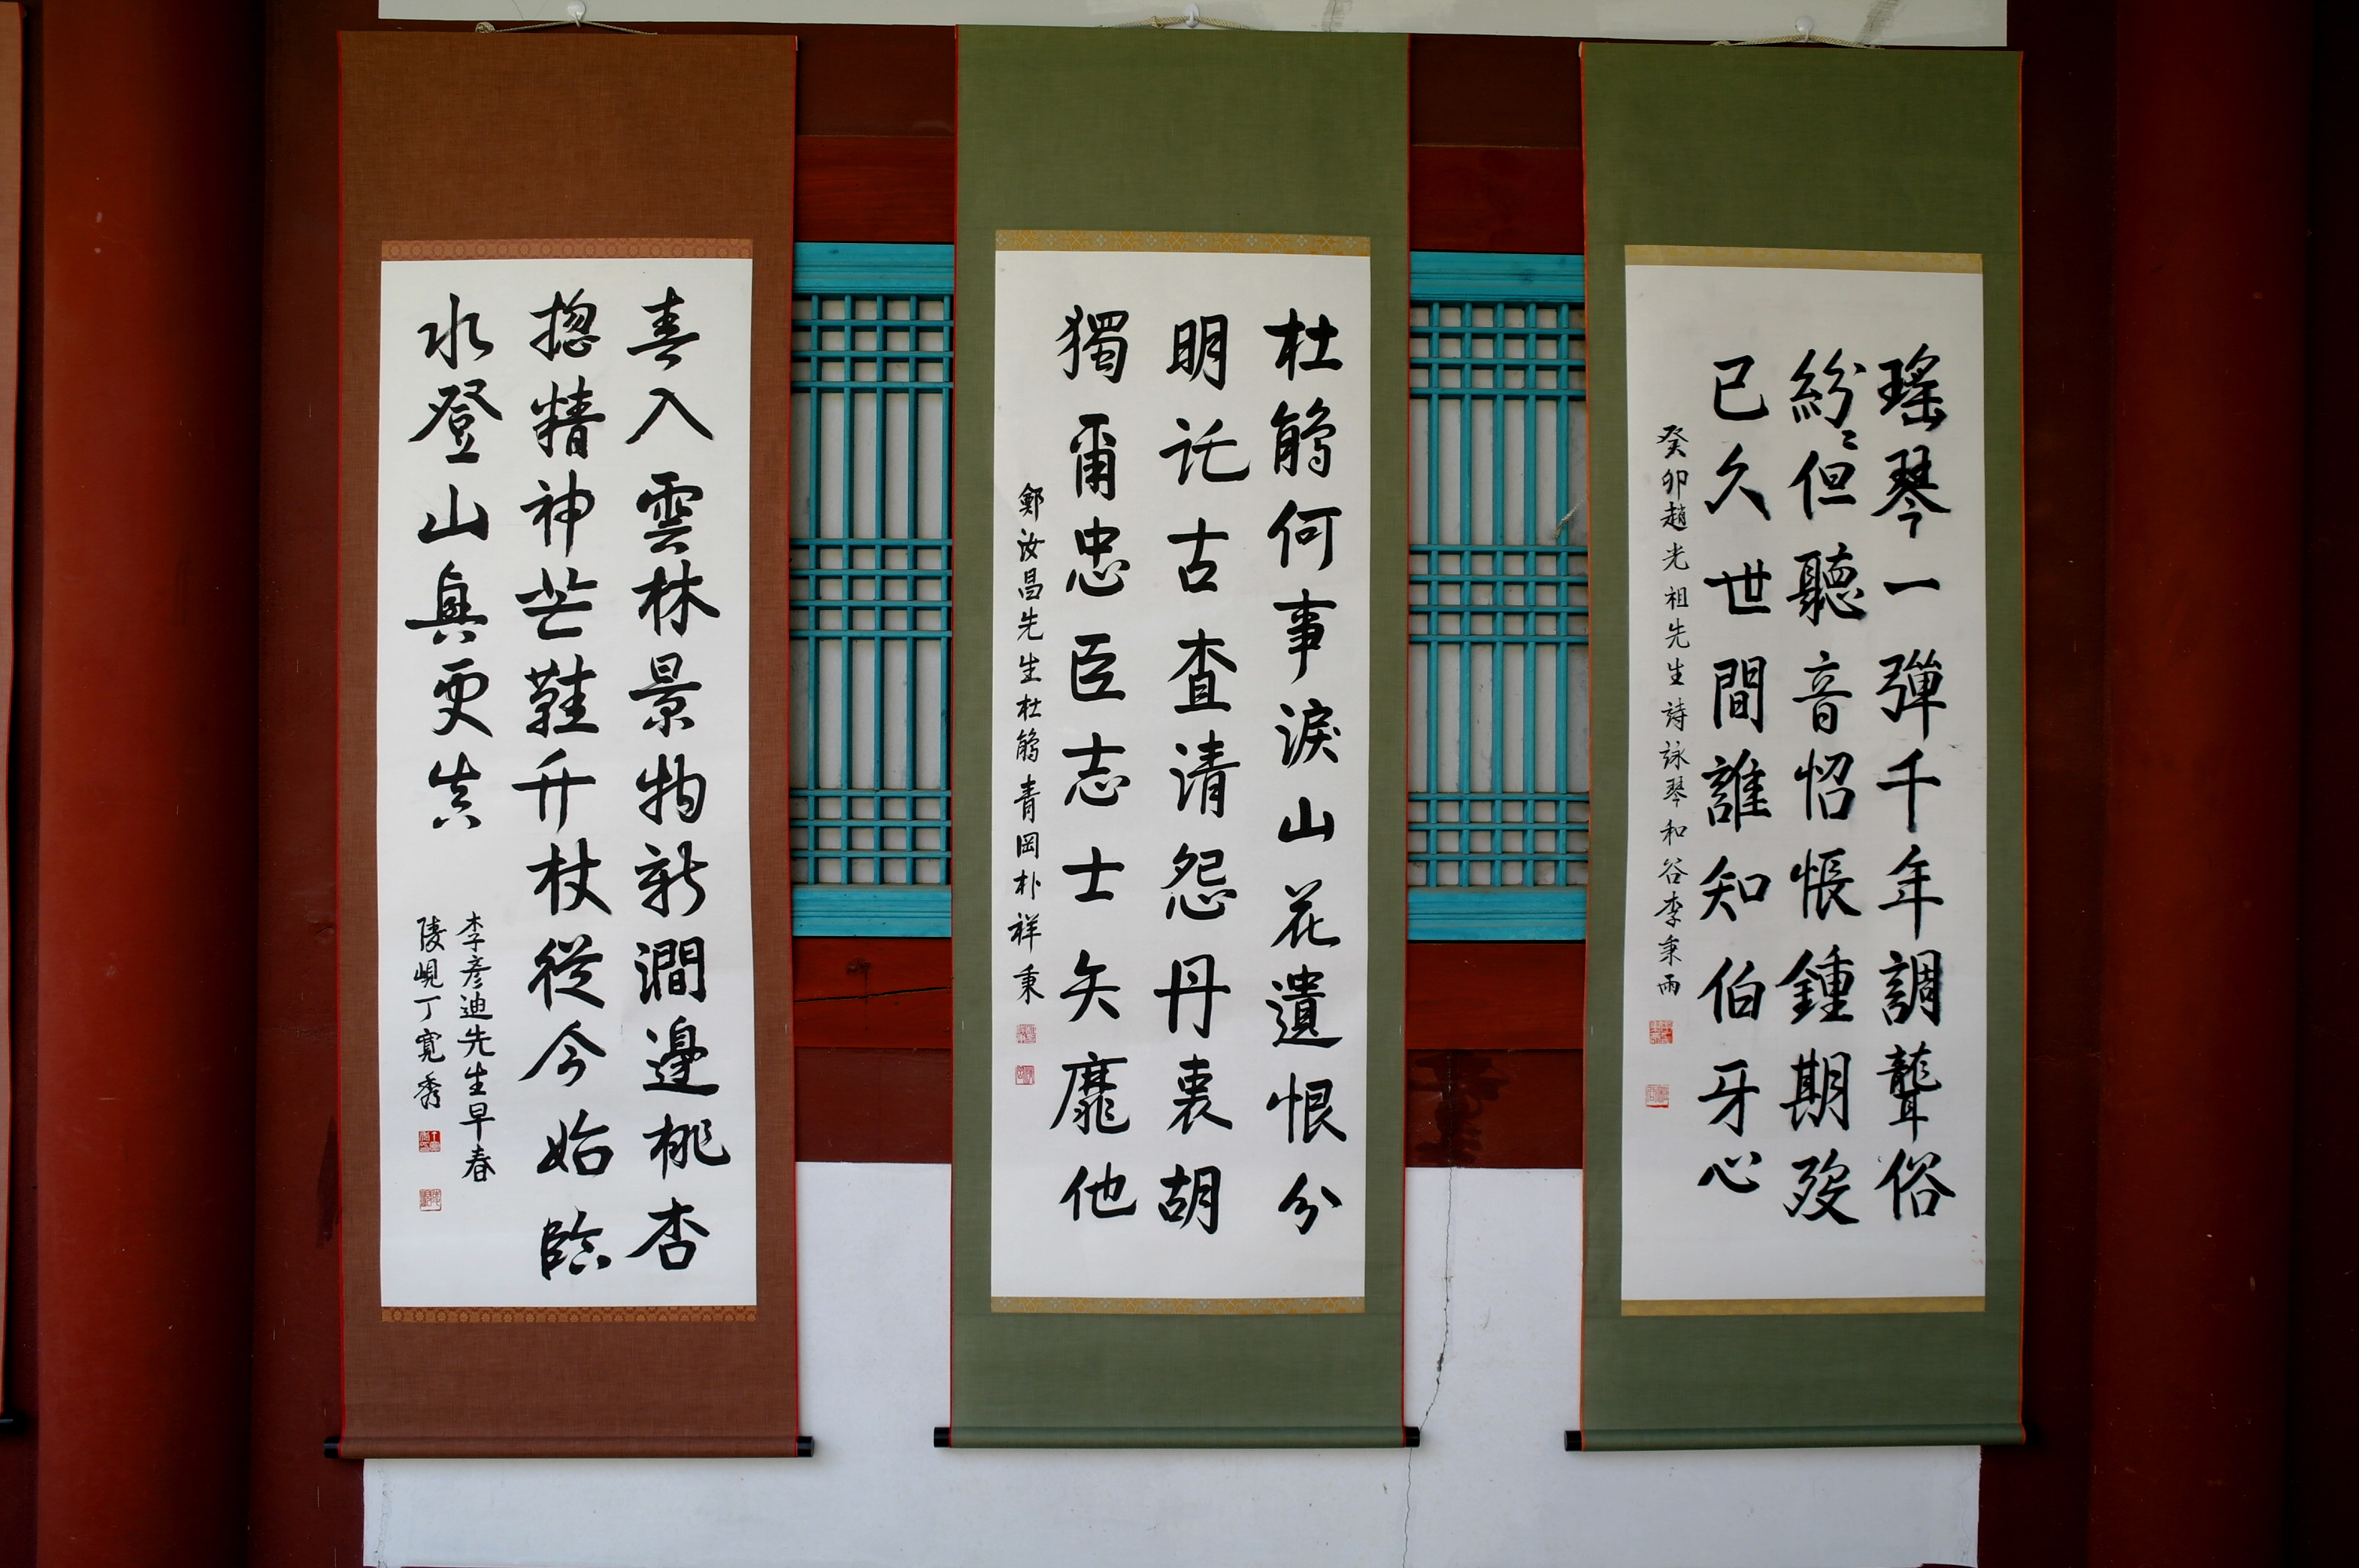 瑤琴一彈千年調聾俗
紛〻但聽音怊悵鍾期歿
已久世間誰知伯牙心
癸卯趙光祖先生詩詠琴和谷李秉雨
杜鵑何事淚山花遺恨分
明託古査清怨丹衷胡
獨爾忠臣志士矢靡他
鄭汝昌先生杜鵑青岡朴祥秉
春入雲林景物新澗邊桃杏
揔精神芒鞋竹杖從今始臨
水登山興更真
李彦迪先生早春
陵峴丁寬秀